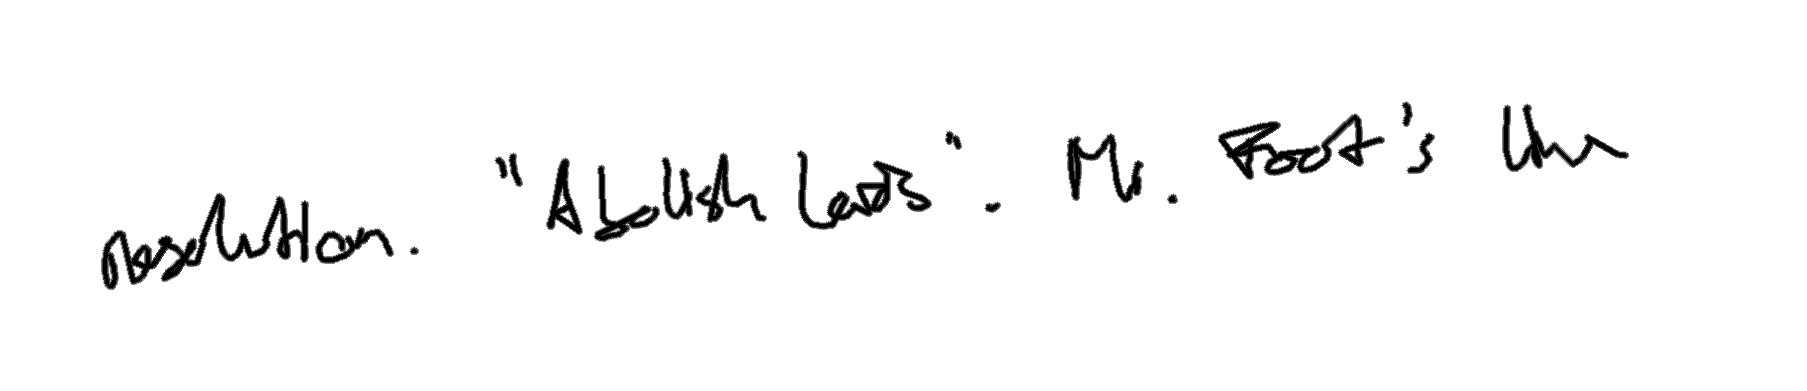 resolution. "Abolish Lords". Mr. Foot's line